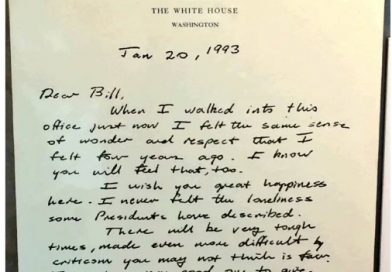 THE WHITE HOUSE
WASHINGTON
Jan 20, 1993
Dear Bill,
When I walked into this
office just now I felt the same sense
of wonder and respect that I
felt four years ago. I know
you will feel that, too.
I wish you great happiness
here. I never felt the loneliness
some Presidents have described.
There will be very tough
times, made even more difficult by
criticism you may not think is fair.